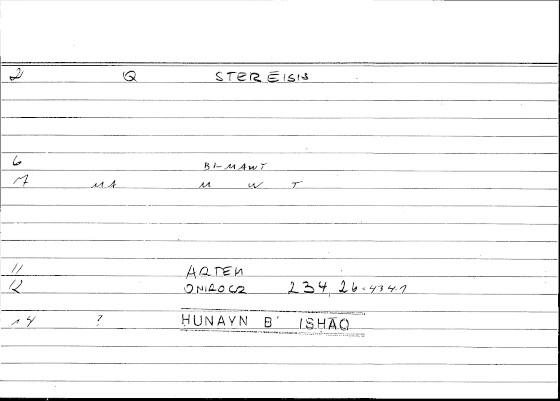 2 Q STEREISIS
6 BI-MAWT
7 MA M W T
11 ARTEM
12 ONIROCR 234, 26-434.1
14 ? HUNAYN B' ISHĀQ